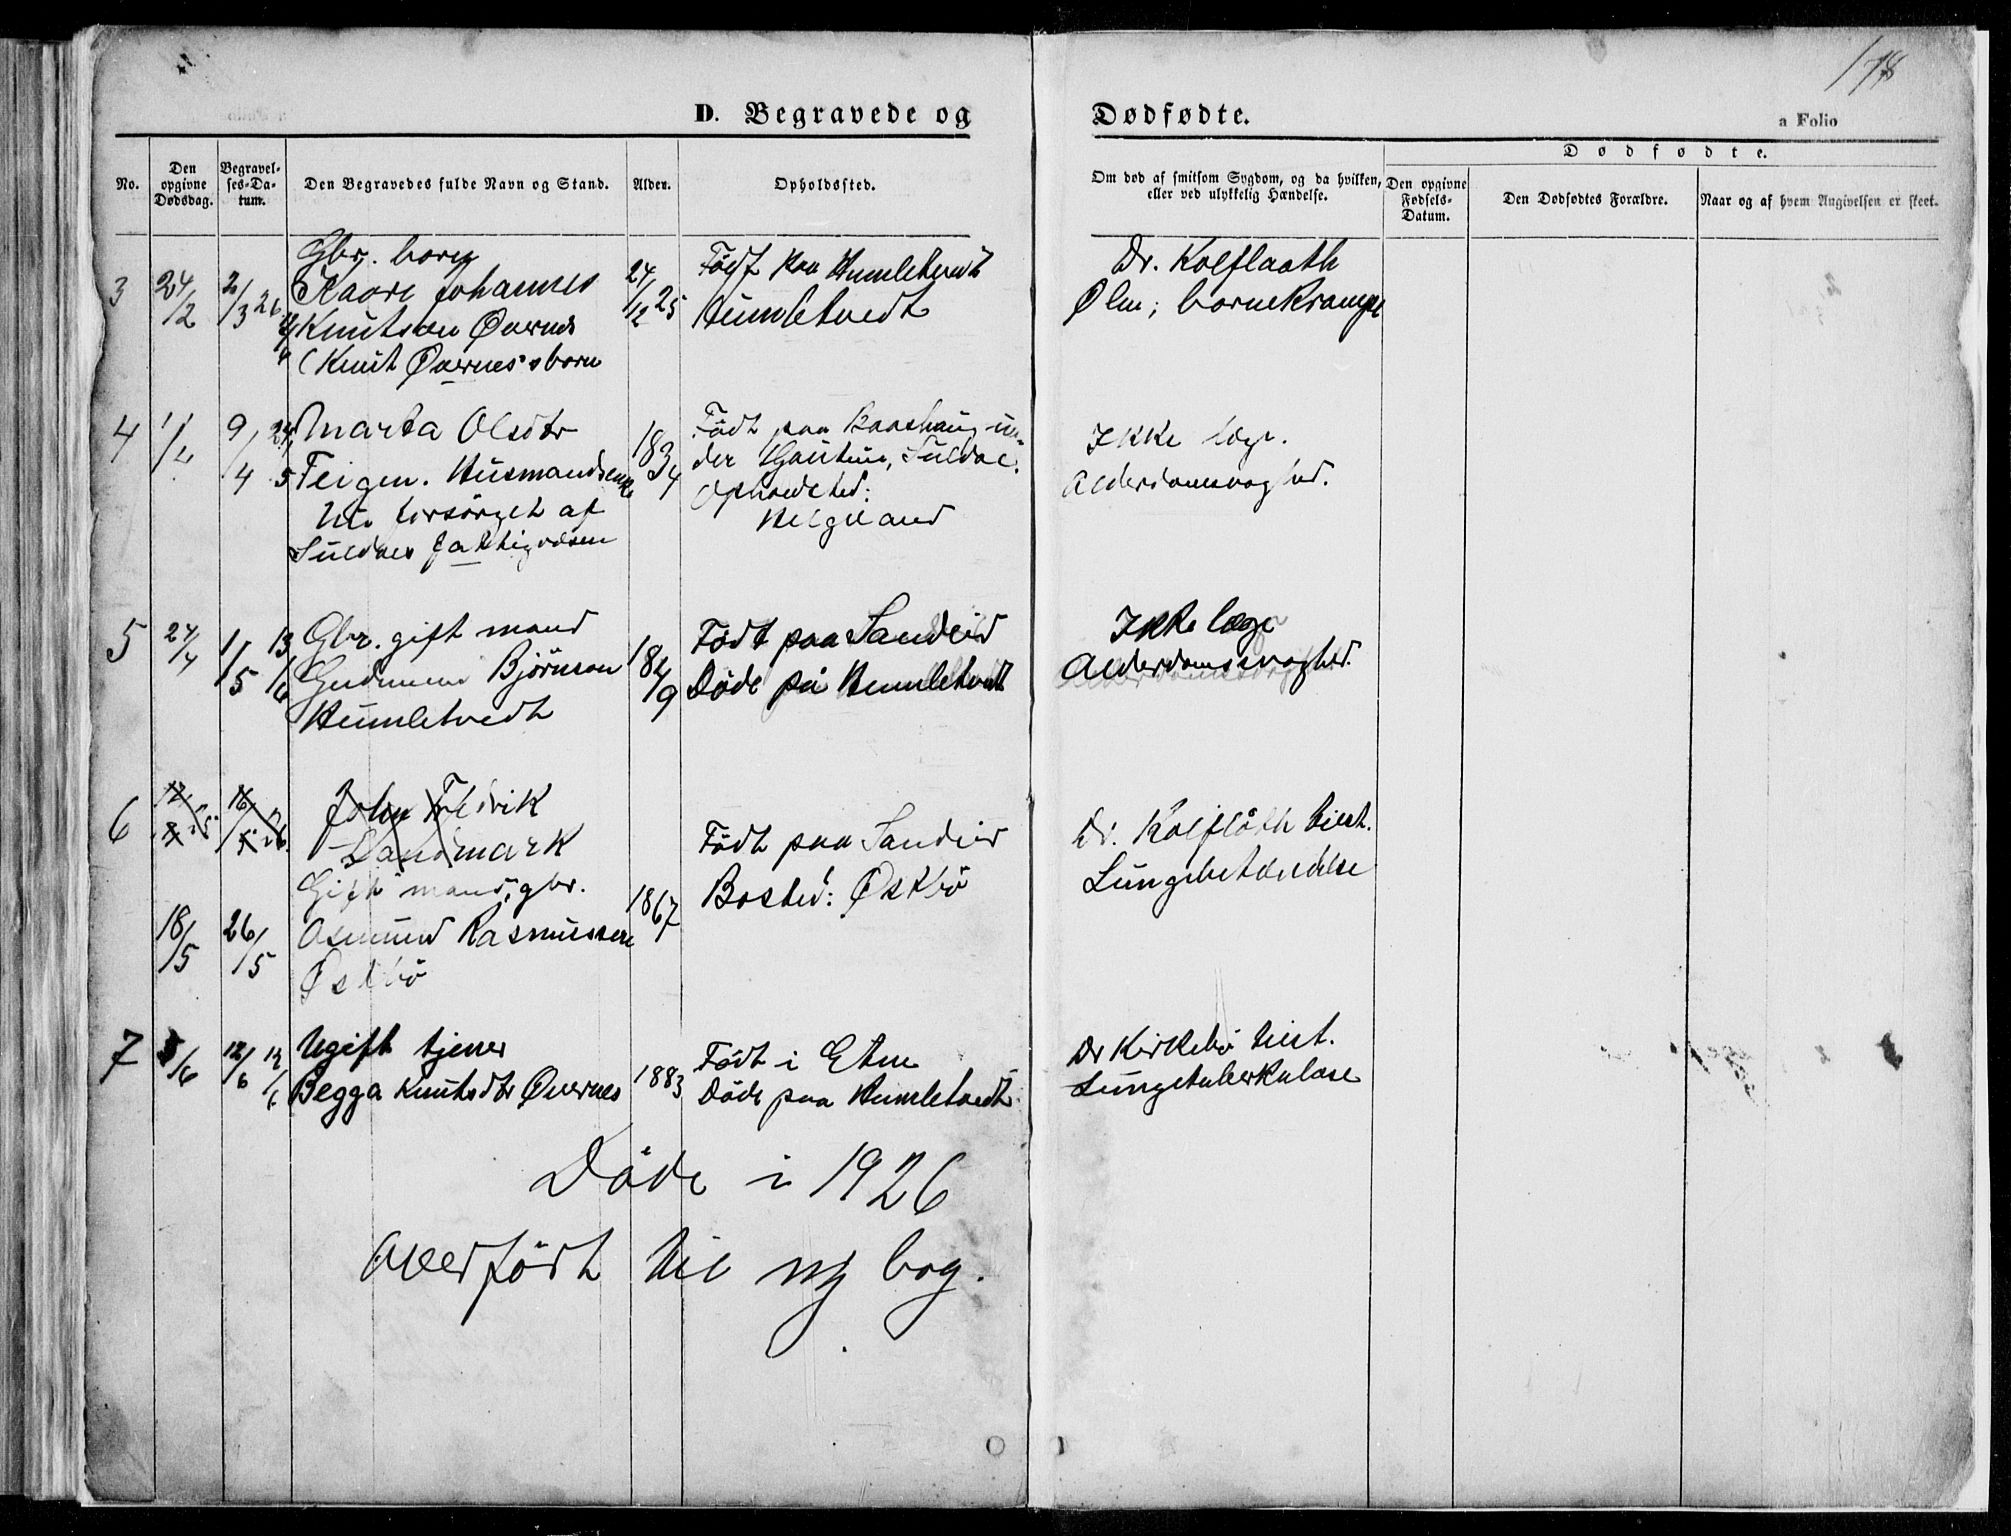 178
D. Begravede og Dødfødte.
a Folio
No.
Den opgivne Dødsdag.
Begravelses-Datum.
Den Begravedes fulde Navn og Stand.
Alder.
Opholdssted.
Om død af smitsom Sygdom, og da hvilken, eller ved ulykkelig Hændelse.
Dødfødte.
Den opgivne Fødsels-Datum.
Den Dødfødtes Forældre.
Naar og af hvem Angivelsen er skeet.
3 24/2 2/3 26
Gbr. born
Kaare Johannes
Knutson Øvernes
(Knut Øvernes's born
24/12 25
Født paa Humletvedt
Humletvedt
Dr. Kolflaath
Ølen; bornekrampe
4 1/4 9/4
Marta Olsdtr
Feigen. Husmandsenke
Un. forsörget af
Suldals fattigvæsen
1834
Født paa Baashaug un-
der Gautun, Suldal.
Opholdsted:
Helgeland
Ikke læge.
Alderdomssvaghed.
5 24/4 1/5 13/6
Gbr. gift mand
Gudmund Björnson
Humletvedt
1849
Født paa Sandeid
Døde på Humletvedt
Ikke læge
Alderdomssvaghed.
6
John
Landmark
Gift mand, gbr.
18/5 26/5
Osmund Rasmussen
Østbö
1867
Födt paa Sandeid
Bosted: Østbö
Dr. Kolflåth tilst.
Lungebetændelse
7 5/6 12/6
Ugift tjener
Begga Knutsdtr Øvernes
1883
Födt i Etne
Döde paa Humletvedt
Dr Kirkebö tilst.
Lungetuberkulose
Döde i 1926
Overført til ny bog.